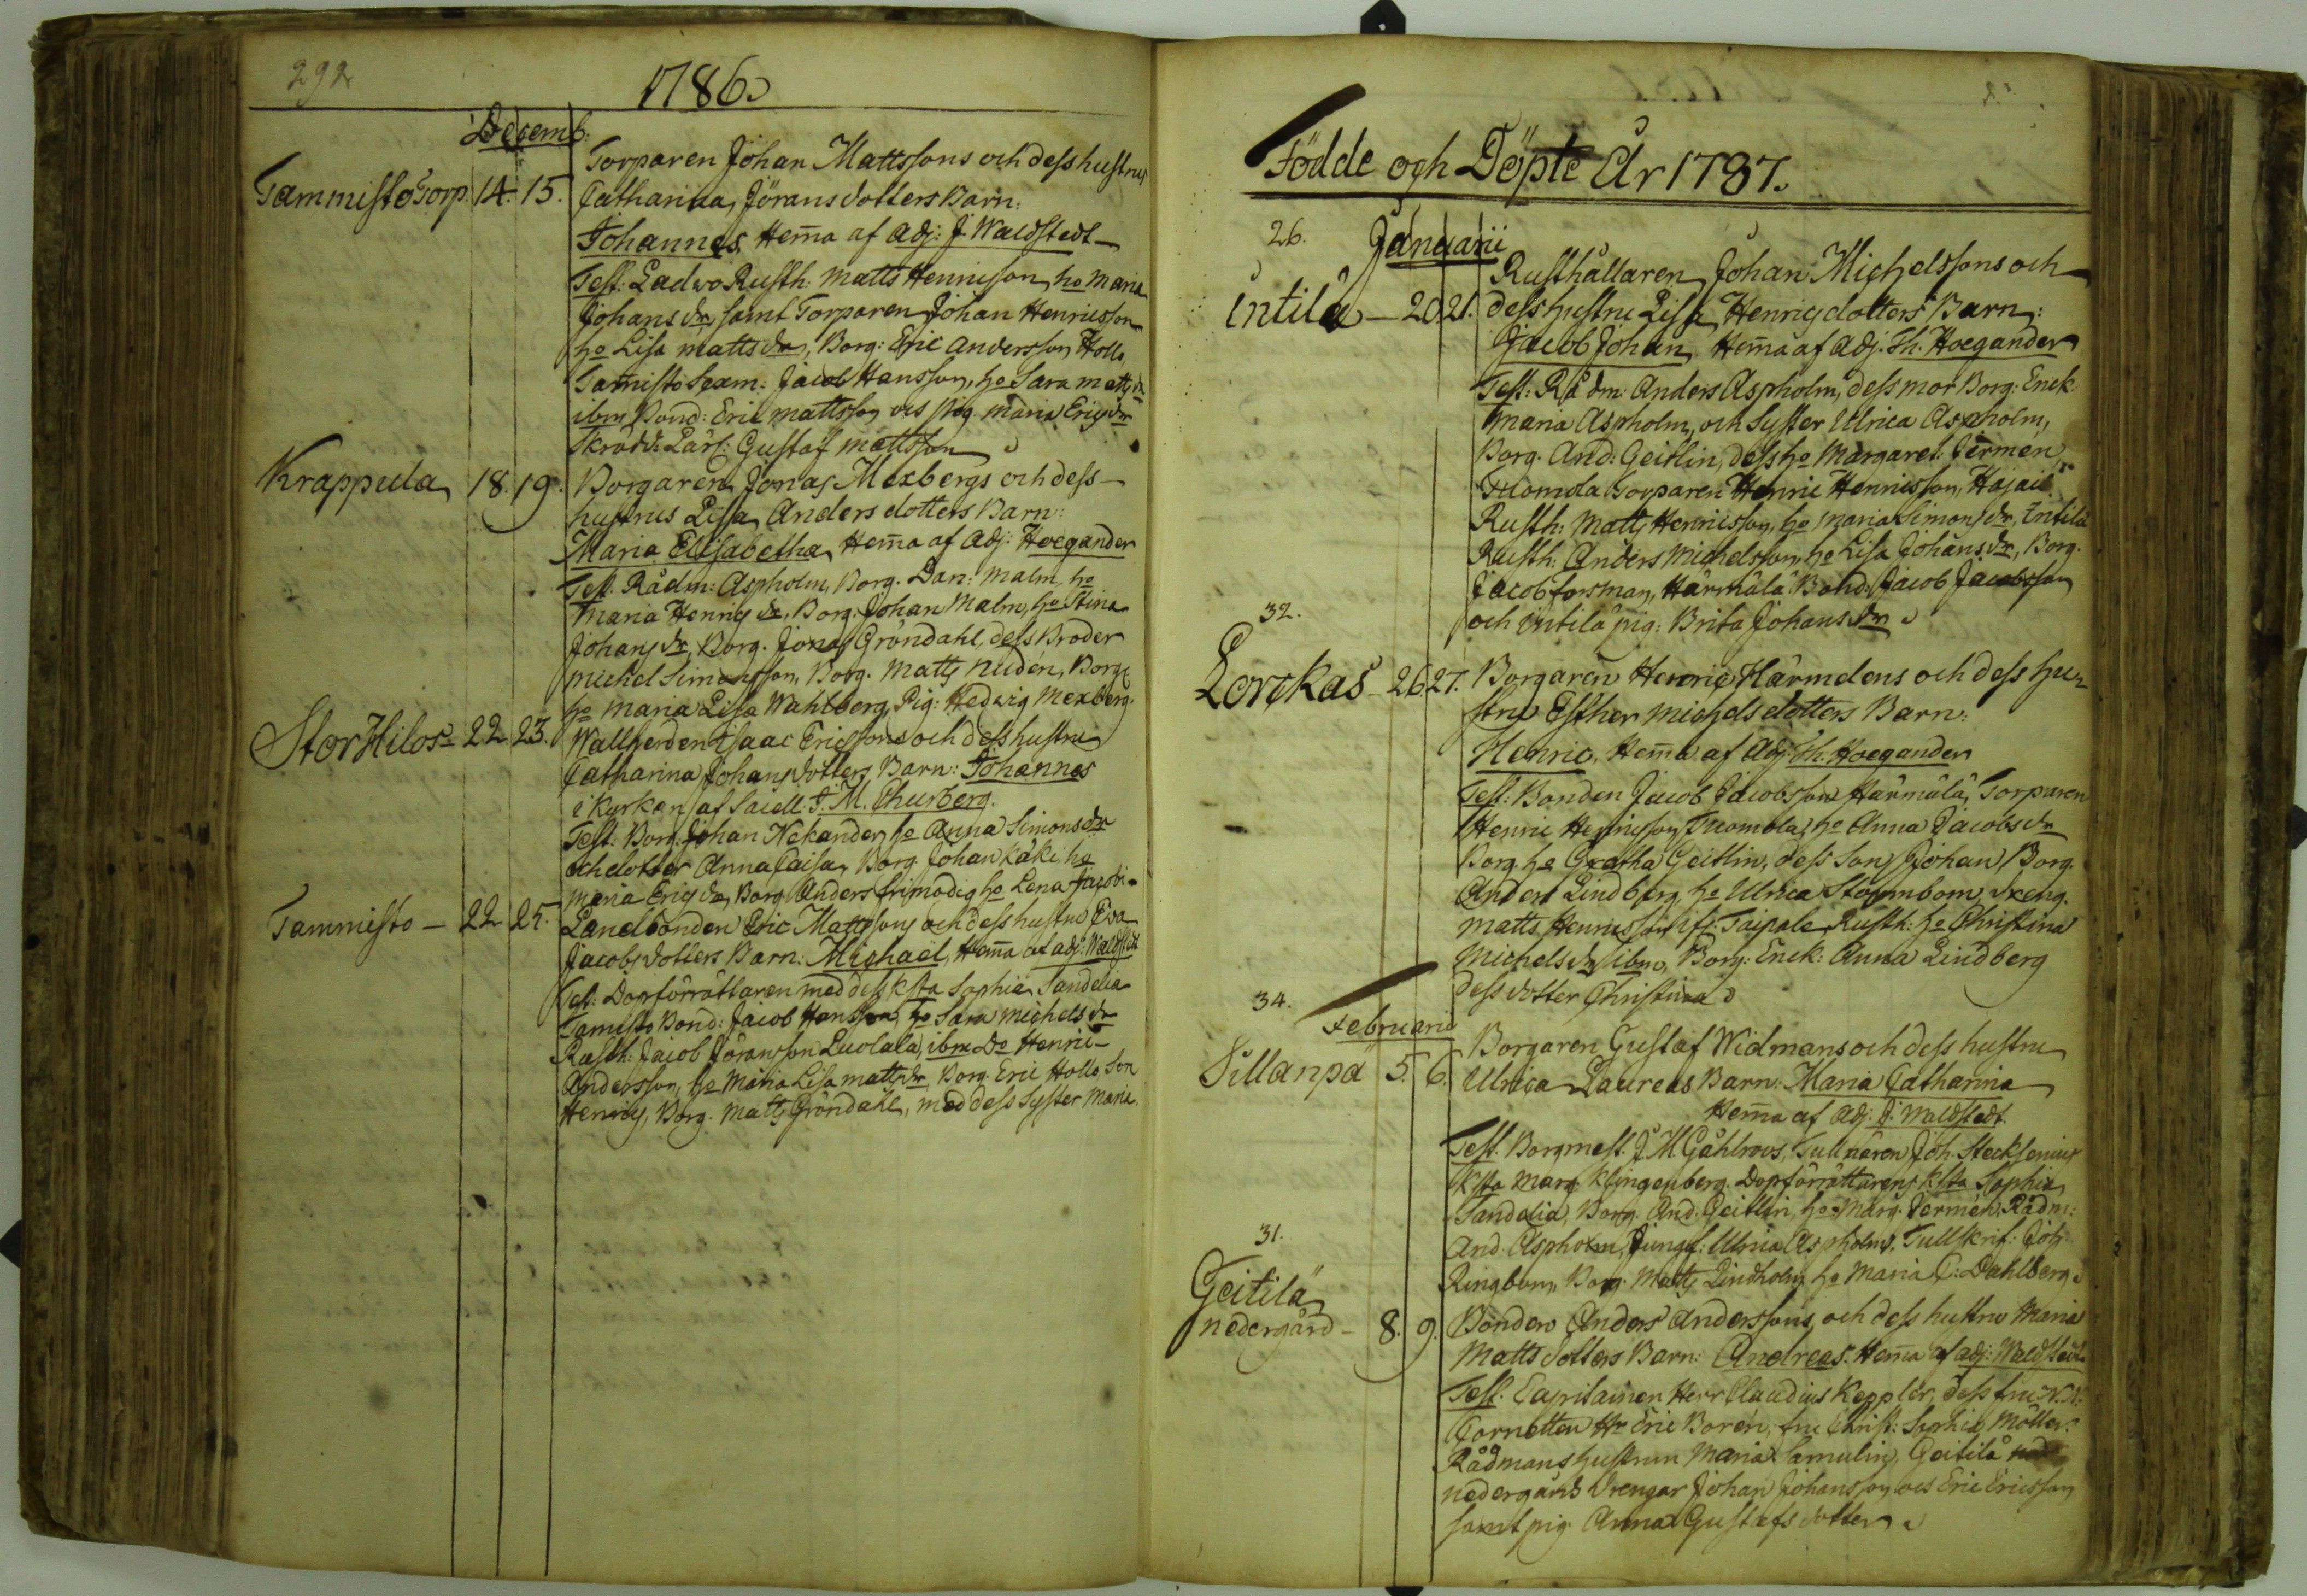 292
1786.
Decemb:
Torparen Johan Mattssons och dess hustrus
Tammisto Torp. 14. 15. Catharina Jörans dotters Barn:
Johannes, Hem̄a af Adj: J. Waldstedt
Test: Ladwo Rusth: Matts Henricsson, ho Maria
Johans dr, samt Torparen Johan Henricsson
ho Lisa Matts dr, Borg: Eric Andersson Hollo,
Tamisto Sexm: Jacob Hansson, ho Sara Matts dr
ibm Bond: Eric Mattsson och pig. Maria Erics dr
Skrädd. Lärl: Gustaf Mattsson
Krappula 18. 19. Borgaren Jonas Mexbergs och dess
hustrus Lisa Anders dotters Barn:
Maria Elisabetha, Hem̄a af Adj: Hoegander
Test. Rådm: Aspholm, Borg. Dan: Malm, ho
Maria Henrics dr, Borg. Johan Malm, ho Stina
Johans dr, Borg. Jonas Gröndahl, dess Broder
Michel Simonsson, Borg. Matts Nuden, Borg:
ho Maria Lisa Wahlberg, Pig: Hedwig Mexberg.
Stor Hilos 22 23. Wallherden Isaac Ericssons och dess hustru
Catharina Johans dotters Barn: Johannes
i Kyrkan af Sacell. J. M. Churberg.
Test: Borg. Johan Nekander, ho Anna Simons dr
och dotter Anna Caisa, Borg. Johan Käki ho
Maria Erics dr, Borg Anders Frimodig ho Lena Jacobi
Tammisto 22 25. Landbonden Eric Mattssons och dess hustru Ewa
Jacobs dotters Barn: Michaël, Hem̄a af adj: Waldstedt
Test: Dopförrättaren med dess Ksta Sophia Sandelia
Tamisto Bond: Jacob Hansson, ho Sara Michels dr
Rusth: Jacob Jöransson Luolala, ibm Do Henric
Andersson, ho Maria Lisa Matts dr, Borg. Eric Hollo Son
Henric, Borg. Matts Gröndahl, med dess Syster Maria.
Födde och Döpte År 1787.
26. Januarii
Rusthållaren Johan Michelssons och
Intilä 20 21. dess hustru Lisa Henrics dotters Barn:
Jacob Johan, Hem̄a af Adj. Th. Hoegander
Test: Rådm: Anders Aspholm, dess mor Borg: Enck:
Maria Aspholm, och Syster Ulrica Aspholm,
Borg. And: Geitlin, dess ho Margaret: Jermén,
Tuomola Torparen Henric Henricsson, Hajais
Rusth: Matts Henricsson, ho Maria Simons dr, Intilä
Rusth: Anders Michelsson, ho Lisa Johans dr, Borg.
Jacob Forsman, Härmälä Bond: Jacob Jacobsson
och Intilä pig: Brita Johans dr
32.
Lorckas 26 27. Borgaren Henric Härmelens och dess hu-
stru Esther Michels dotters Barn:
Henric, Hem̄a af Adj. Th. Hoegander
Test: Bonden Jacob Jacobsson Härmälä, Torparen
Henric Henricsson Tuomola, ho Anna Jacobs dr
Borg. ho Gretha Geitlin, dess Son Johan, Borg.
Anders Lindberg, ho Ulrica Stormbom, dreng.
Matts Henricsson Taipale Rusth: ho Christina
Michels dr ibm, Borg: Enck: Anna Lindberg
dess dotter Christina
34.
Februarii
Borgaren Gustaf Widmans och dess hustru
Sillanpä 5. 6. Ulrica Laureas Barn: Maria Catharina
Hem̄a af Adj. J. Waldstedt.
Test. Borgmest. J M Gåhlroos, Tullnären Joh. Stecksenius
Ksta Marg. Klingenberg, Dopförrättarens Ksta Sophia
Sandelia, Borg. And. Geitlin, ho Marg. Jermén, Rådm:
And. Aspholm, Jungf: Ulrica Aspholm, Tullskrif: Joh.
Ringbom, Borg. Matts Lindholm, ho Maria C: Dahlberg.
31.
Geitilä
nedergård 8. 9. Bonden Anders Anderssons, och dess hustru Maria
Matts dotters Barn: Andreas. Hem̄a af adj: Waldstedt
Test. Capitainen Herr Claudius Keppler, dess fru N.N.
Cornetten Hr Eric Boren, fru Christ: Sophia Möller
Rådmans hustrun Maria Samulin, Geitilä
nedergårds drengar Johan Johansson och Eric Ericsson
samt pig. Anna Gustafs dotter